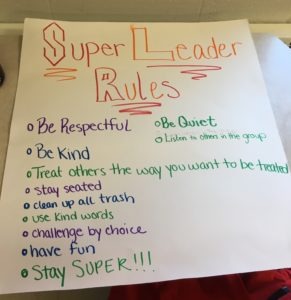 Super Leader
Rules
Be Respectful
Be Quiet
Listen to others in the group
Be Kind
Treat others the way you want to be treated
stay seated
clean up all trash
use kind words
challenge by choice
have fun
Stay SUPER!!!